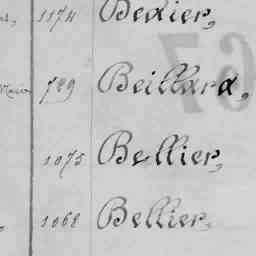 1174 Bedier,
Marie 789 Beillard,
1075 Bellier,
1068 Bellier,